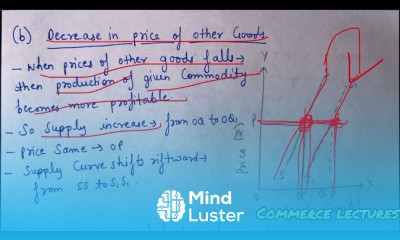 (b) Decrease in price of other Goods
- When prices of other goods falls→
then production of given Commodity
becomes more profitable.
- So Supply increase→ from OQ to OQ1
- Price Same → OP
- Supply Curve shifts riftward→
from SS to S1S1.
Y
P
Price
S
Q
X
Mind
Luster
COMMERCE lectures